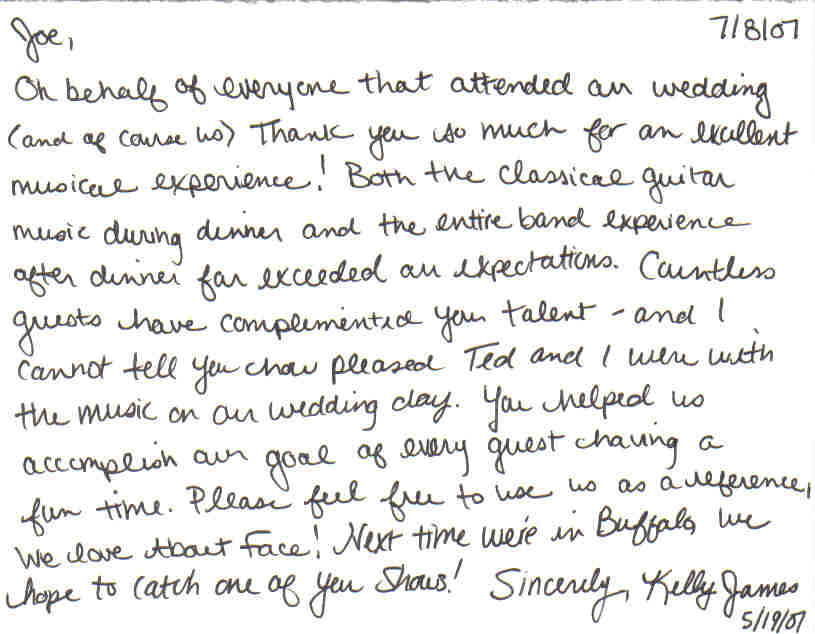 7/8/07
Joe,
On behalf of everyone that attended our wedding
(and of course us) Thank you so much for an excellent
musical experience! Both the classical guitar
music during dinner and the entire band experience
after dinner far exceeded our expectations. Countless
guests have complemented your talent - and I
cannot tell you how pleased Ted and I were with
the music on our wedding day. You helped us
accomplish our goal of every guest having a
fun time. Please feel free to use us as a reference,
We love About Face! Next time we're in Buffalo, we
hope to catch one of your shows! Sincerely, Kelly James
5/19/07